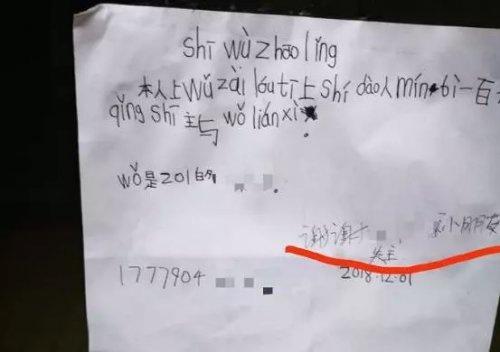 shī wù zhāo lǐng
本人上wǔ zài lóu tī上shí dào人mín bì一百
qǐng shī主与wǒ lián xì
wǒ是201的
谢谢 小朋友
失主
1777904
2018.12.01